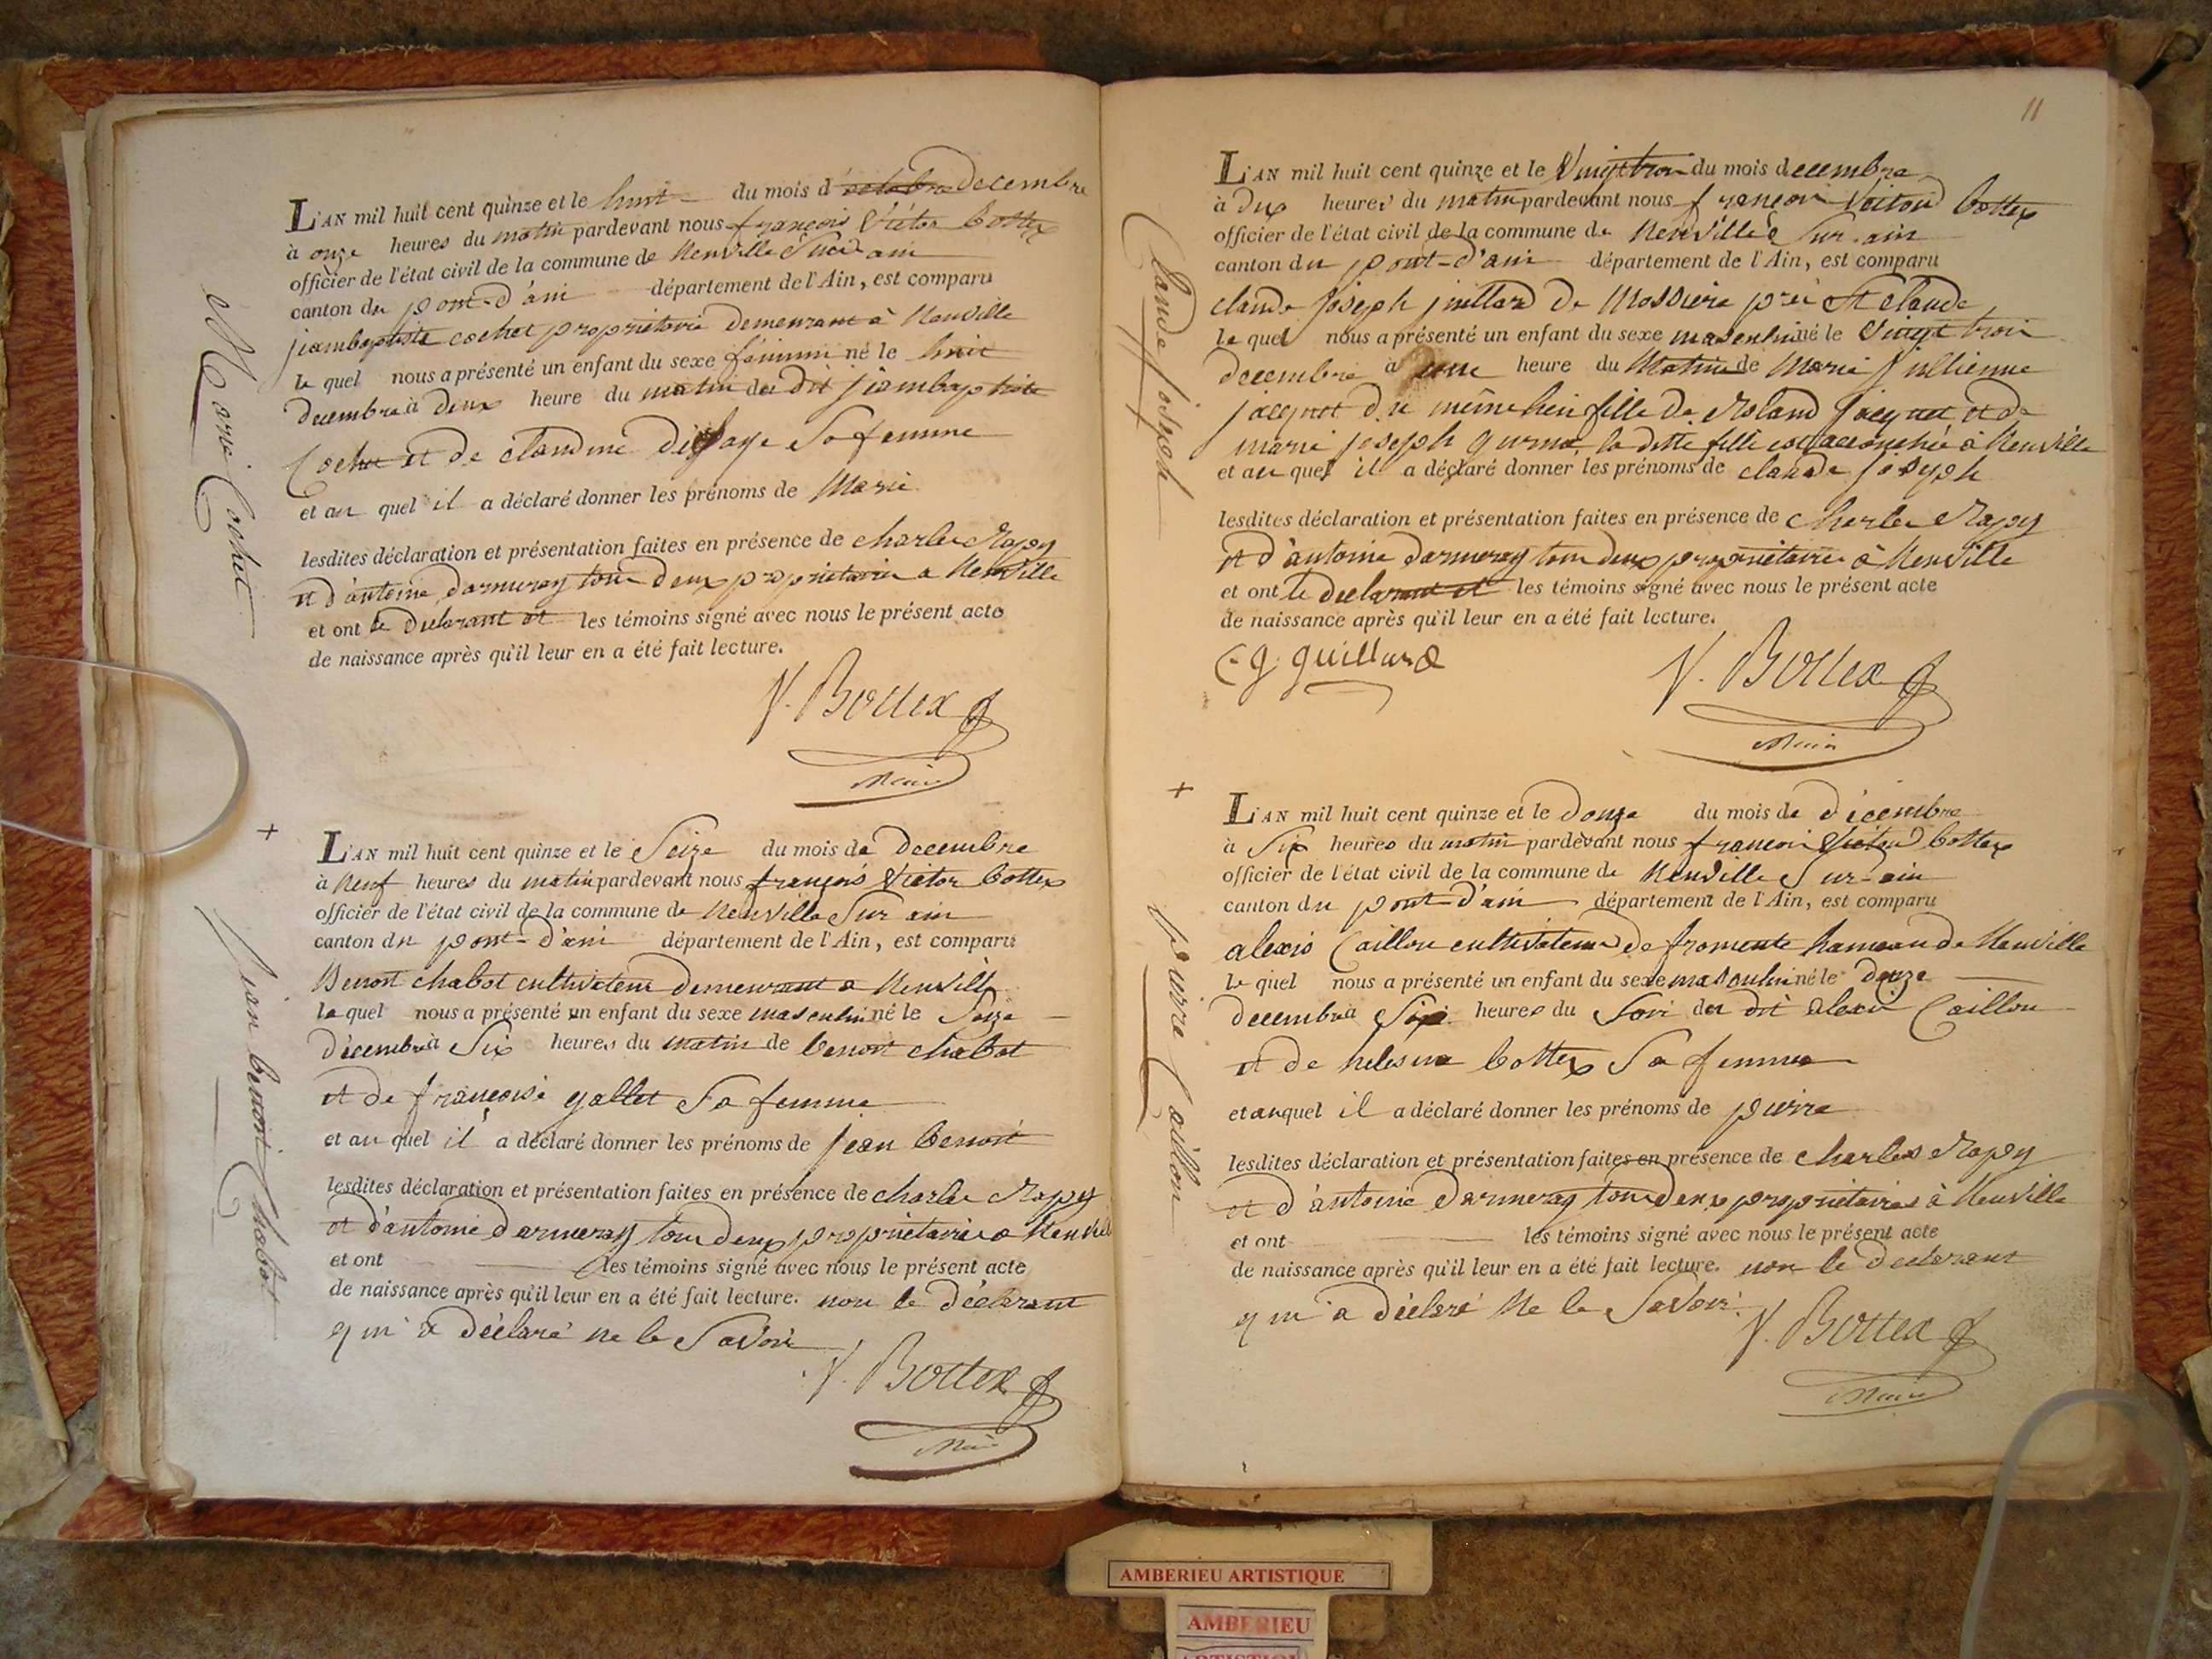 L'AN mil huit cent quinze et le huit du mois d'octobre decembre
à onze heures du matin pardevant nous françois Victor Bottex
officier de l'état civil de la commune de Neuville Sur ain
canton du pont-d'ain département de l'Ain, est comparu
jeambaptiste cochet proprietaire demeurant à Neuville
le quel nous a présenté un enfant du sexe féminin né le huit
decembre à deux heure du matin du dit jeambaptiste
Cochet et de claudine Sa femme
et au quel il a déclaré donner les prénoms de Marie
lesdites déclaration et présentation faites en présence de charles Rapy
et d'antoine darmeray tous deux proprietaires a Neuville
et ont le Declarant et les témoins signé avec nous le présent acte
de naissance après qu'il leur en a été fait lecture.
V. Bottex
Maire
Marie Cochet
L'AN mil huit cent quinze et le Seize du mois de Decembre
à Neuf heures du matin pardevant nous françois Victor Bottex
officier de l'état civil de la commune de Neuville Sur ain
canton du pont-d'ain département de l'Ain, est comparu
Benoit chabot cultivateur demeurant a Neuville
le quel nous a présenté un enfant du sexe masculin né le Seize
décembre à Six heures du matin de benoit chabot
et de françoise gallet Sa femme
et au quel il a déclaré donner les prénoms de jean benoit
lesdites déclaration et présentation faites en présence de charles Rapy
et d'antoine darmeray tous deux proprietaires a Neuville
et ont les témoins signé avec nous le présent acte
de naissance après qu'il leur en a été fait lecture. non le déclarant
qui a déclaré ne le Savoir
V. Bottex
Maire
+
jean benoit Chabot
11
L'AN mil huit cent quinze et le Vingt trois du mois decembre
à dix heures du matin pardevant nous françois Victor Bottex
officier de l'état civil de la commune de Neuville Sur ain
canton du pont-d'ain département de l'Ain, est comparu
claude joseph juillard de près St Claude
le quel nous a présenté un enfant du sexe masculin né le Vingt trois
decembre à heure du Matin de Marie jullienne
jacquet du même lieu fille de Roland jacquet et de
marie joseph la ditte fille est accouchée à Neuville
et au quel il a déclaré donner les prénoms de claude joseph
lesdites déclaration et présentation faites en présence de charles Rapy
et d'antoine darmeray tous deux proprietaires à Neuville
et ont le declarant et les témoins signé avec nous le présent acte
de naissance après qu'il leur en a été fait lecture.
C. J. guillard
V. Bottex
Maire
Claude joseph
L'AN mil huit cent quinze et le douze du mois de décembre
à Six heures du matin pardevant nous françois Victor Bottex
officier de l'état civil de la commune de Neuville Sur-ain
canton du pont-d'ain département de l'Ain, est comparu
alexis Caillon cultivateur de fromente hameau de Neuville
le quel nous a présenté un enfant du sexe masculin né le douze
decembre à Six heures du Soir du dit alexis Caillon
et de bottex Sa femme
et auquel il a déclaré donner les prénoms de pierre
lesdites déclaration et présentation faites en présence de charles Rapy
et d'antoine darmeray tous deux proprietaires à Neuville
et ont les témoins signé avec nous le présent acte
de naissance après qu'il leur en a été fait lecture. non le declarant
qui a déclaré Ne le Savoir.
V. Bottex
Maire
+
pierre Caillon
AMBERIEU ARTISTIQUE
AMBERIEU
ARTISTIQU